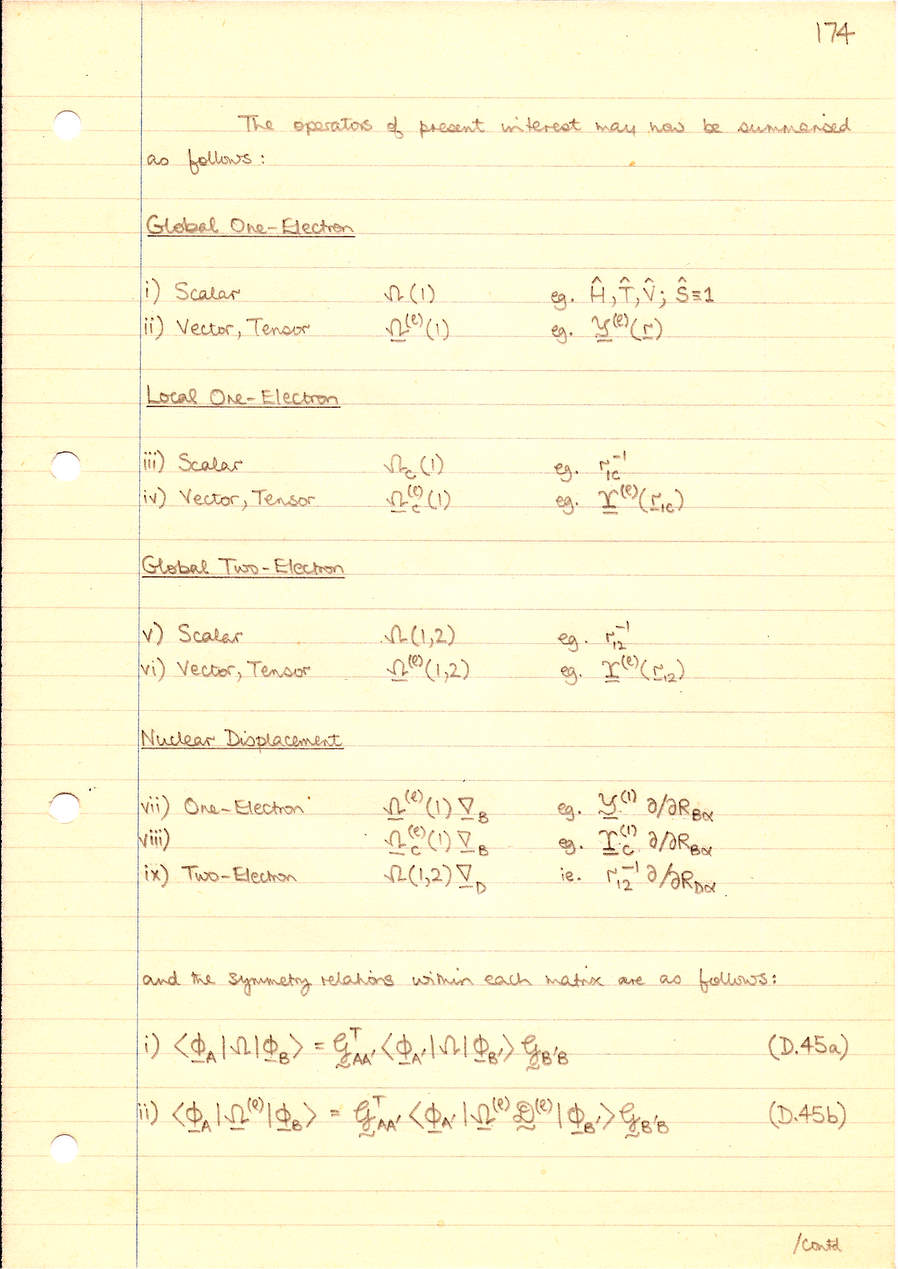 174
The operators of present interest may now be summarised
as follows :
Global One-Electron
i) Scalar Ω(1) eg. Ĥ, T̂, V̂ ; Ŝ≡1
ii) Vector, Tensor Ω^(ℓ)(1) eg. 𝒴^(ℓ)(r)
Local One-Electron
iii) Scalar Ω_C(1) eg. r_1C^-1
iv) Vector, Tensor Ω_C^(ℓ)(1) eg. ϒ^(ℓ)(r_1C)
Global Two-Electron
v) Scalar Ω(1,2) eg. r_12^-1
vi) Vector, Tensor Ω^(ℓ)(1,2) eg. ϒ^(ℓ)(r_12)
Nuclear Displacement
vii) One-Electron Ω^(ℓ)(1) ∇_B eg. 𝒴^(1) ∂/∂R_Bα
viii) Ω_C^(ℓ)(1) ∇_B eg. ϒ_C^(1) ∂/∂R_Bα
ix) Two-Electron Ω(1,2) ∇_D ie. r_12^-1 ∂/∂R_Dα
and the symmetry relations within each matrix are as follows:
i) ⟨Φ_A|Ω|Φ_B⟩ = 𝒢^T_AA' ⟨Φ_A'|Ω|Φ_B'⟩ 𝒢_B'B (D.45a)
ii) ⟨Φ_A|Ω^(ℓ)|Φ_B⟩ = 𝒢^T_AA' ⟨Φ_A'|Ω^(ℓ) 𝒟^(ℓ)|Φ_B'⟩ 𝒢_B'B (D.45b)
/contd